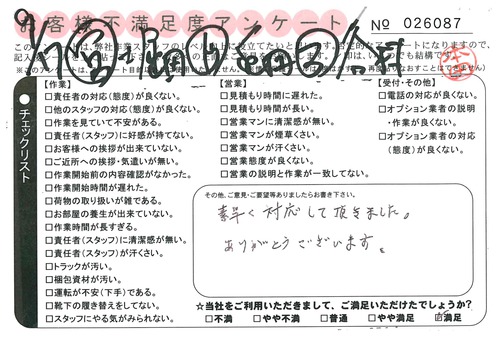 お客様不満足度アンケート
No 026087
チェックリスト
【作業】
□責任者の対応(態度)が良くない。
□他のスタッフの対応(態度)が良くない。
□作業を見ていて不安がある。
□責任者(スタッフ)に好感が持てない。
□お客様への挨拶が出来ていない。
□ご近所への挨拶・気遣いが無い。
□作業開始前の内容確認がなかった。
□作業開始時間が遅れた。
□荷物の取り扱いが雑である。
□お部屋の養生が出来ていない。
□作業時間が長すぎる。
□責任者(スタッフ)に清潔感が無い。
□責任者(スタッフ)が汗くさい。
□トラックが汚い。
□梱包資材が汚い。
□運転が不安(下手)である。
□靴下の履き替えをしてない。
□スタッフにやる気がみられない。
【営業】
□見積もり時間に遅れた。
□見積もり時間が長い。
□営業マンに清潔感が無い。
□営業マンが煙草くさい。
□営業マンが汗くさい。
□営業態度が良くない。
□営業の説明と作業が一致してない。
【受付・その他】
□電話の対応が良くない。
□オプション業者の説明
・作業が良くない。
□オプション業者の対応
(態度)が良くない。
その他、ご意見・ご要望等ありましたらお書き下さい。
素早く対応して頂きました。
ありがとうございます。
☆当社をご利用いただきまして、ご満足いただけたでしょうか?
□不満 □やや不満 □普通 □やや満足 ☑満足